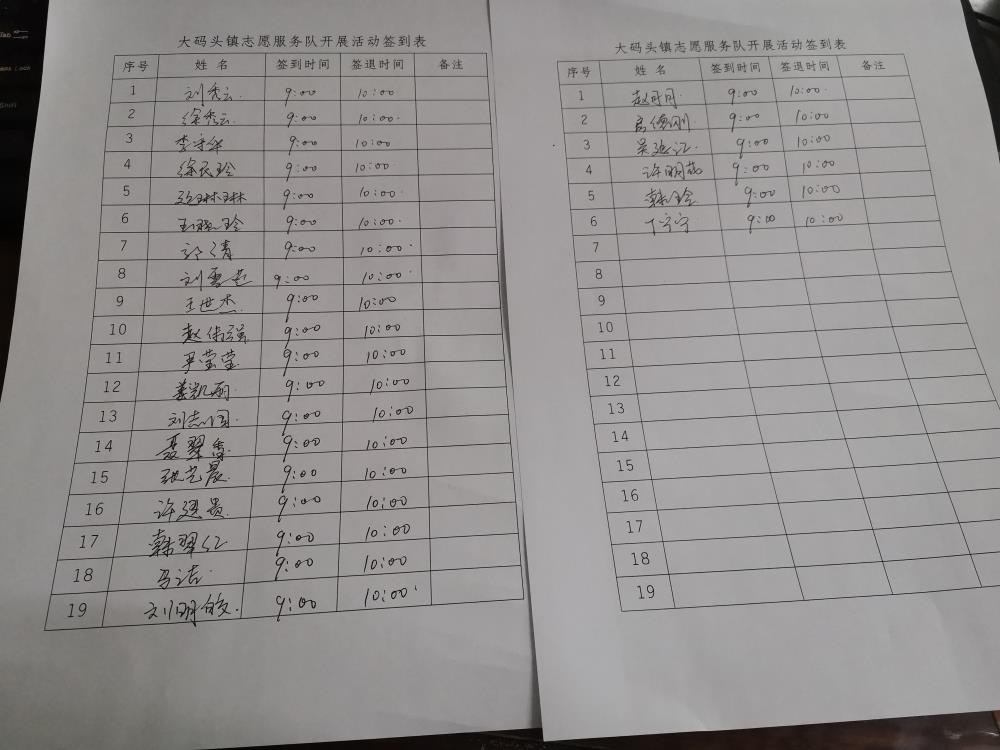 大码头镇志愿服务队开展活动签到表
序号 姓名 签到时间 签退时间 备注
1 刘秀云 9:00 10:00
2 徐秀云 9:00 10:00
3 李守华 9:00 10:00
4 徐民玲 9:00 10:00
5 琳琳 9:00 10:00
6 王晓玲 9:00 10:00
7 清 9:00 10:00
8 刘雪 9:00 10:00
9 王世杰 9:00 10:00
10 赵伟强 9:00 10:00
11 尹莹莹 9:00 10:00
12 姜凯丽 9:00 10:00
13 刘志国 9:00 10:00
14 聂翠香 9:00 10:00
15 张艺晨 9:00 10:00
16 许建贵 9:00 10:00
17 韩翠红 9:00 10:00
18 马洁 9:00 10:00
19 刘明皎 9:00 10:00
大码头镇志愿服务队开展活动签到表
序号 姓名 签到时间 签退时间 备注
1 赵时同 9:00 10:00
2 德刚 9:00 10:00
3 吴延江 9:00 10:00
4 许明花 9:00 10:00
5 韩玲 9:00 10:00
6 丁宁宁 9:00 10:00
7
8
9
10
11
12
13
14
15
16
17
18
19